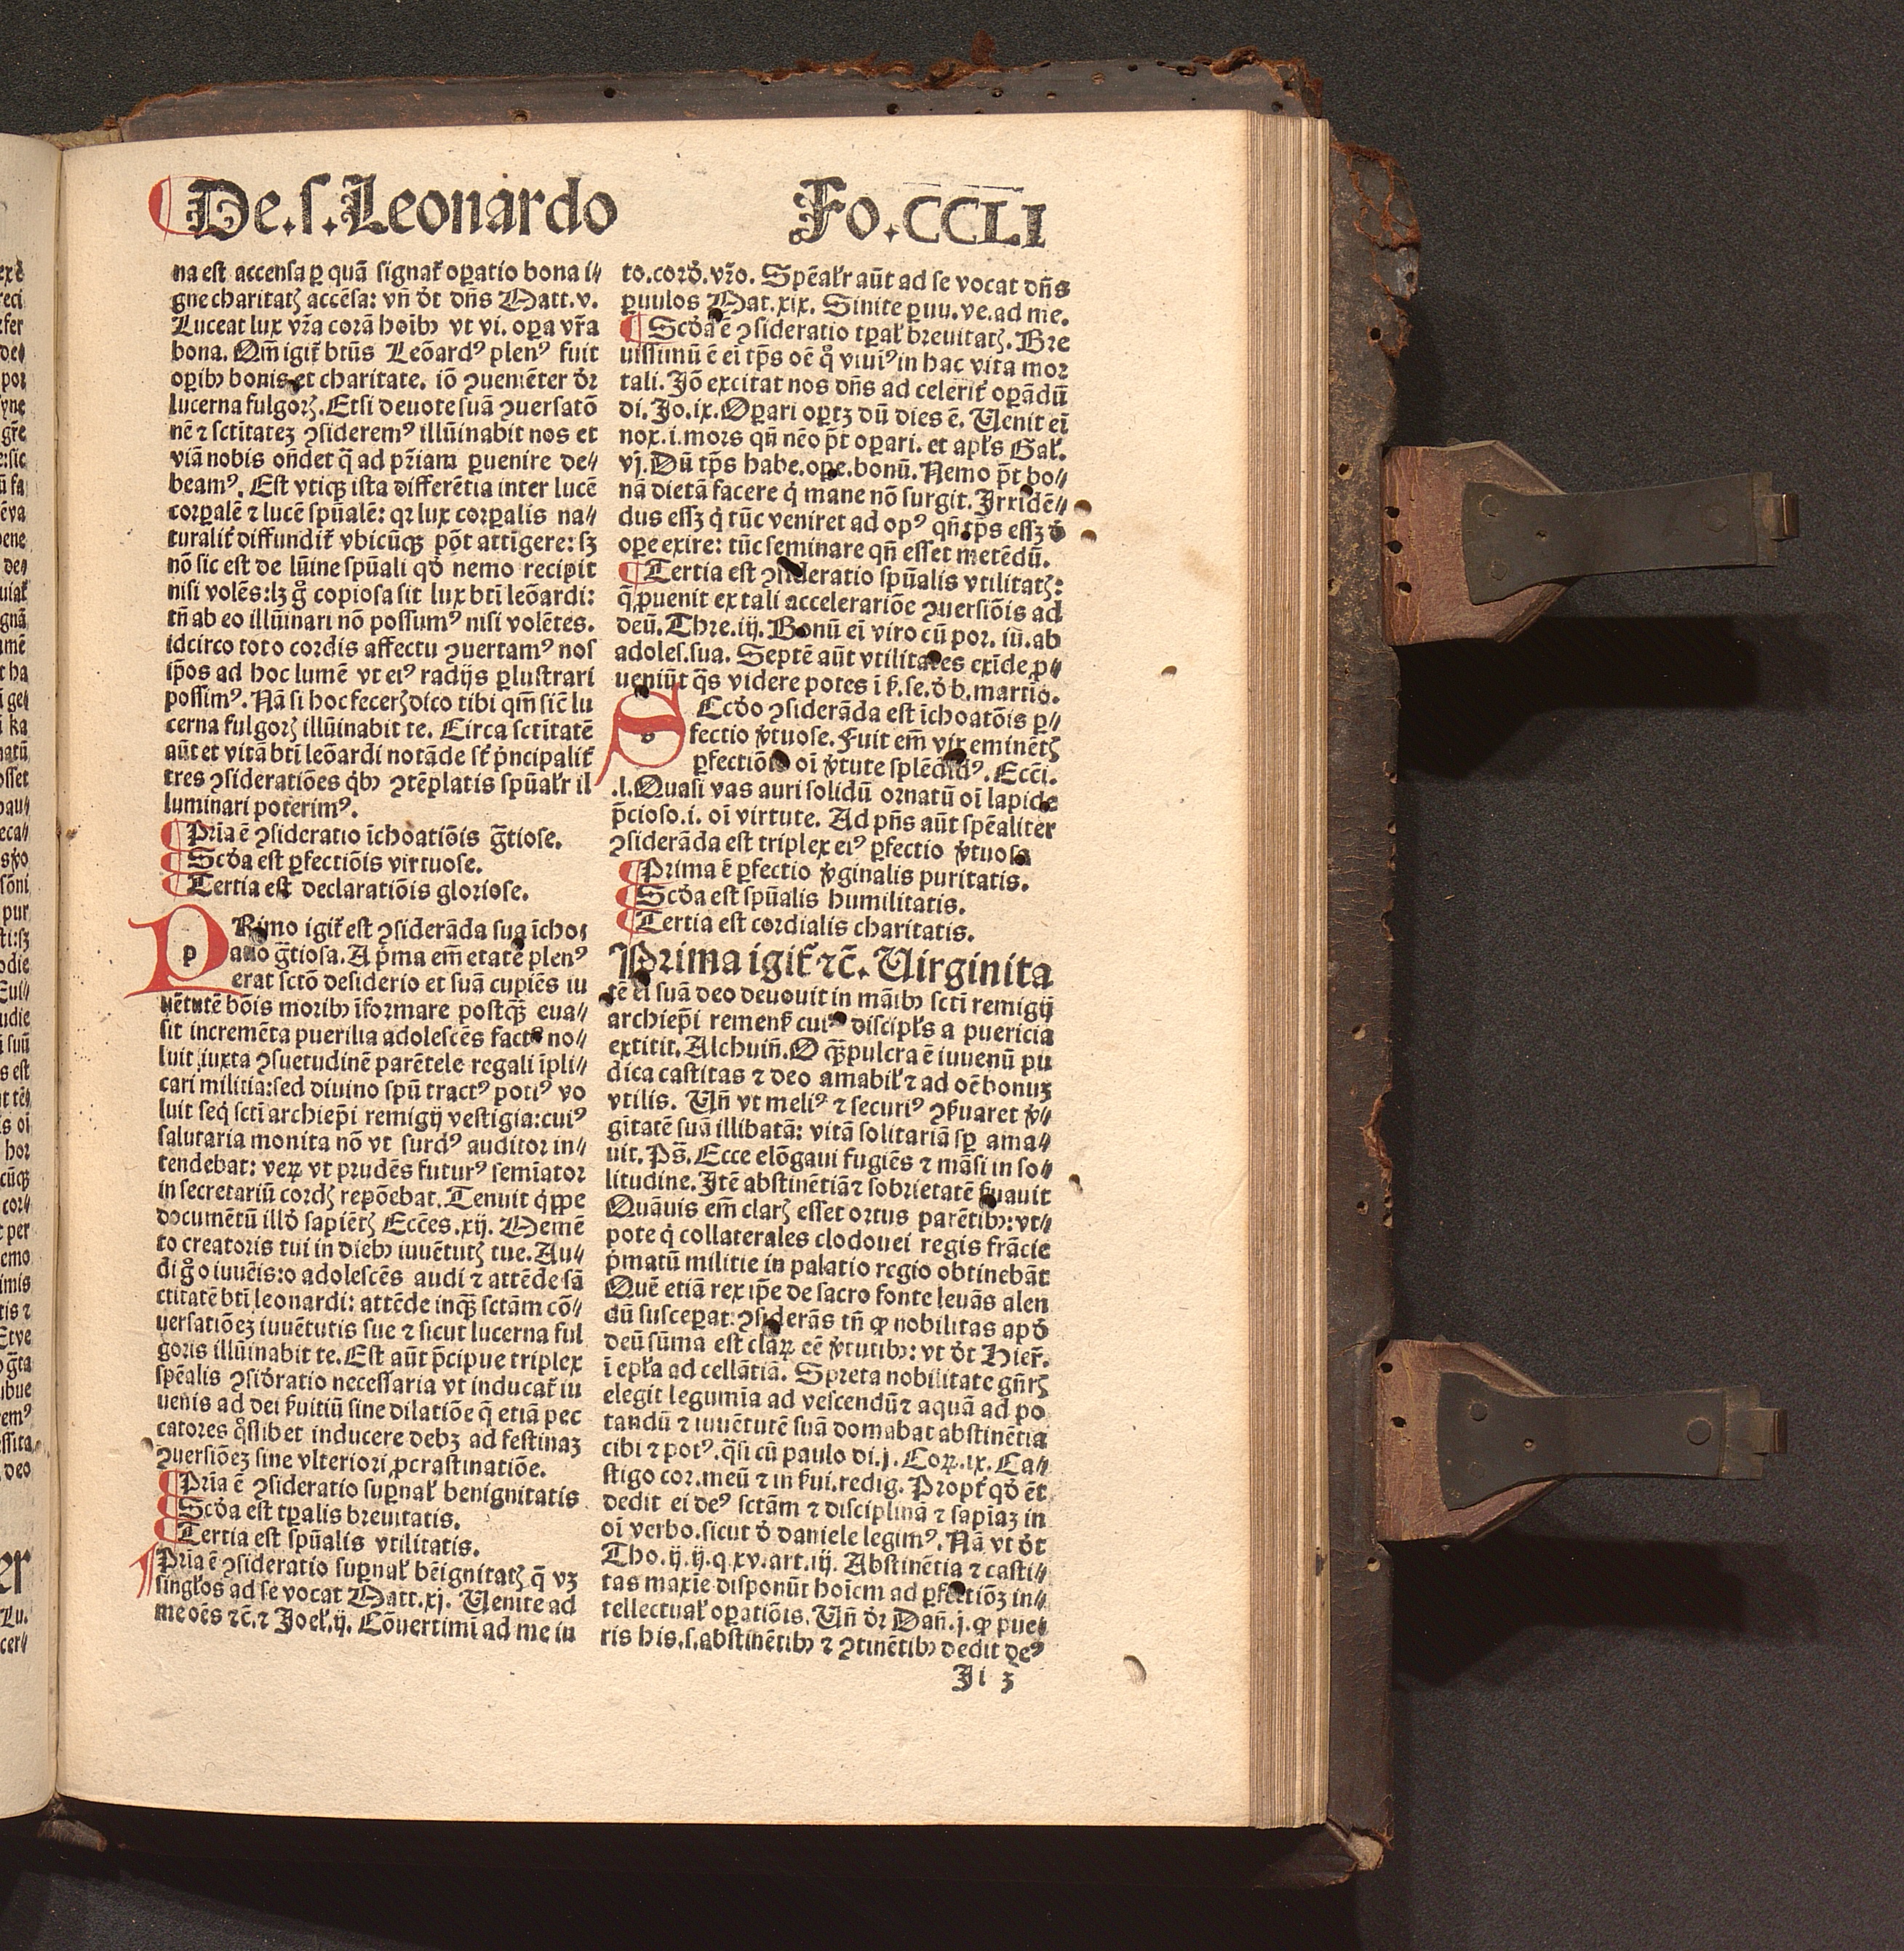 De.s.Leonardo Fo.CCLI
na est accensa ꝑ quã signat᷑ oꝑatio bona i⸗
gne charitatꝭ accẽsa: vñ ð̃t dñs Matt.v.
Luceat lux vr̃a corã hoĩbꝰ vt vi. oꝑa vr̃a
bona. Qm̃ igit᷑ btũs Leõardꝰ plenꝰ fuit
oꝑibꝰ bonis et charitate. iõ ꝯueniẽter ðr
lucerna fulgorꝭ. Etsi deuote suã ꝯuersatõ
nẽ ⁊ sctĩtateꝫ ꝯsideremꝰ illũinabit nos et
viã nobis oñdet q̃ ad pr̃iam ꝑuenire de⸗
beamꝰ. Est vtiqꝫ ista differẽtia inter lucẽ
corꝑalẽ ⁊ lucẽ spũalẽ: qꝛ lux corꝑalis na⸗
turalit᷑ diffundit᷑ vbicũqꝫ põt attĩgere: sꝫ
nõ sic est de lũine spũali qð nemo recipit
nisi volẽs: lꝫ g̊ copiosa sit lux btĩ leõardi:
tñ ab eo illũinari nõ possumꝰ nisi volẽtes.
idcirco toto cordis affectu ꝯuertamꝰ nos
ip̃os ad hoc lumẽ vt eiꝰ radijs ꝑlustrari
possimꝰ. Nã si hoc fecerꝭ dico tibi qm̃ sicẽ lu
cerna fulgorꝭ illũinabit te. Circa sctĩtatẽ
aũt et vitã btĩ leõardi notãde st᷑ pͥncipalit᷑
tres ꝯsideratiões qͥbꝰ ꝯtẽplatis spũalr̃ il
luminari poterimꝰ.
¶ Pria ẽ ꝯsideratio ĩchoatiõis gr̃tiose.
¶ Scða est ꝑfectiõis virtuose.
¶ Tertia est declaratiõis gloriose.
PRimo igit᷑ est ꝯsiderãda sua ĩchoa
atio gr̃tiosa. A pͥma em̃ etatẽ plenꝰ
erat sctõ desiderio et suã cupiẽs iu
uẽtutẽ bõis moribꝰ ĩformare postqꝫ̃ eua⸗
sit incremẽta puerilia adolescẽs factꝰ no⸗
luit iuxta ꝯsuetudinẽ parẽtele regali ĩpli⸗
cari militia: sed diuino spũ tractꝰ potiꝰ vo
luit seqͥ sctĩ archiep̃i remigij vestigia: cuiꝰ
salutaria monita nõ vt surdꝰ auditor in⸗
tendebat: veꝝ vt prudẽs futurꝰ semĩator
in secretariũ cordꝭ repõebat. Tenuit qͥppe
documẽtũ illð sapiẽtꝭ Ecc̃es.xij. Memẽ
to creatoris tui in diebꝰ iuuẽtutꝭ tue. Au⸗
di g̊ o iuuẽis: o adolescẽs audi ⁊ attẽde sã
ctitatẽ btĩ leonardi: attẽde inqꝫ̃ sctãm cõ⸗
uersatiõeꝫ iuuẽtutis sue ⁊ sicut lucerna ful
goris illũinabit te. Est aũt p̃cipue triplex
spẽalis ꝯsiðratio necessaria vt inducat᷑ iu
uenis ad dei ẜuitiũ sine dilatiõe q̃ etiã pec
catores qͦslibet inducere debꝫ ad festinaꝫ
ꝯuersiõeꝫ sine vlteriori ꝓcrastinatiõe.
¶ Pria ẽ ꝯsideratio suꝑnal̃ benignitatis
¶ Scða est tꝑalis breuitatis.
¶ Tertia est spũalis vtilitatis.
¶ Pria ẽ ꝯsideratio suꝑnal̃ bẽignitatꝭ q̃ vꝫ
singlos ad se vocat Matt.xj. Uenite ad
me oẽs ⁊c̃. ⁊ Joel̃.ij. Cõuertimĩ ad me in
to.corð.vr̃o. Spẽalr̃ aũt ad se vocat dñs
ꝑuulos Mat.xix. Sinite ꝑuu.ve.ad me.
¶ Scða ẽ ꝯsideratio tꝑal̃ breuitatꝭ. Bre
uissimũ ẽ eĩ tp̃s oẽ qͦ viuĩꝰ in hac vita mor
tali. Jõ excitat nos dñs ad celerit᷑ oꝑãdũ
di. Jo.ix. Oꝑari oꝑtꝫ dũ dies ẽ. Uenit eĩ
nox.i.mors qñ nẽo p̃t oꝑari. et apl̃s Gal̃.
vj. Dũ tp̃s habe.oꝑe.bonũ. Nemo p̃t bo⸗
nã dietã facere qͥ mane nõ surgit. Jrridẽ⸗
dus essꝫ qͥ tũc veniret ad opꝰ qñ tp̃s essꝫ ð
oꝑe exire: tũc seminare qñ esset metẽdũ.
¶ Tertia est ꝯsideratio spũalis vtilitatꝭ:
q̃ ꝓuenit ex tali acceleratiõe ꝯuersiõis ad
deũ. Thre.iij. Bonũ eĩ viro cũ por. iũ.ab
adoles.sua. Septẽ aũt vtilitates exĩde ꝓ⸗
ueniũt q̃s videre potes ĩ ẜ.se.ð b.martiõ.
SEcðo ꝯsiderãda est ĩchoatõis ꝑ⸗
fectio v̓tuose. Fuit em̃ vir eminẽtꝭ
ꝑfectiõis oĩ v̓tute splẽdidꝰ. Ecc̃i.
.l. Quasi vas auri solidũ ornatũ oĩ lapide
p̃cioso.i. oĩ virtute. Ad pñs aũt spẽaliter
ꝯsiderãda est triplex eiꝰ ꝑfectio v̓tuosa
¶ Prima ẽ ꝑfectio v̓ginalis puritatis.
¶ Scða est spũalis humilitatis.
¶ Tertia est cordialis charitatis.
Prima igit᷑ ⁊c̃. Uirginita
tẽ eĩ suã deo deuouit in mãibꝰ sctĩ remigij
archiep̃i remenẜ cuiꝰ discipl̃s a puericia
extitit. Alchuiñ. O qꝫ̃ pulcra ẽ iuuenũ pu
dica castitas ⁊ deo amabil̃ ⁊ ad oẽ bonuꝫ
vtilis. Uñ vt meliꝰ ⁊ securiꝰ ꝯẜuaret v̓⸗
gĩtatẽ suã illibatã: vitã solitariã sꝑ ama⸗
uit. Ps̃. Ecce elõgaui fugiẽs ⁊ mãsi in so⸗
litudine. Jtẽ abstinẽtiã ⁊ sobrietatẽ ẜuauit
Quãuis em̃ clarꝭ esset ortus parẽtibꝰ: vt⸗
pote qͥ collaterales clodouei regis frãcie
pͥmatũ militie in palatio regio obtinebãt
Quẽ etiã rex ip̃e de sacro fonte leuãs alen
dũ susceꝑat: ꝯsiderãs tñ ꝙ nobilitas apð
deũ sũma est claꝝ eẽ v̓tutibꝰ: vt ð̃t Hier̃.
ĩ epl̃a ad cellãtiã. Spreta nobilitate gñrꝭ
elegit legumĩa ad vescendũ ⁊ aquã ad po
tandũ ⁊ iuuẽtutẽ suã domabat abstinẽtia
cibi ⁊ potꝰ. q̃si cũ paulo di.j. Coꝝ.ix. Ca⸗
stigo cor.meũ ⁊ in ẜui.redig. Propt᷑ qð ẽt
dedit ei deꝰ sctãm ⁊ disciplinã ⁊ sapĩaꝫ in
oĩ verbo.sicut ð daniele legimꝰ. Nã vt ð̃t
Tho.ij.ij.q xv.art.iij. Abstinẽtia ⁊ casti⸗
tas maxĩe disponũt hoĩem ad ꝑfectiõꝫ in⸗
tellectual̃ oꝑatiõis. Uñ ðr Dañ.j. ꝙ pue⸗
ris his.s.abstinẽtibꝰ ⁊ ꝯtinẽtibꝰ dedit deꝰ
Ji 3